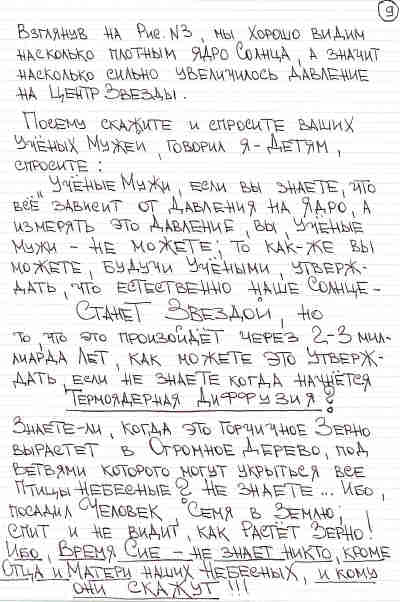 9
Взглянув на Рис. N3, мы хорошо видим
насколько плотным ядро Солнца, а значит
насколько сильно увеличилось давление
на Центр Звезды.
Посему скажите и спросите ваших
Учёных Мужей, говорил я - Детям,
спросите:
"Учёные Мужи, если вы знаете, что
всё зависит от давления на Ядро, а
измерять это давление, вы, Учёные
мужи - не можете; то как-же вы
можете, будучи Учёными, утверж-
дать, что естественно наше Солнце -
Станет Звездой, но
то, что это произойдёт через 2-3 мил-
лиарда лет, как можете это утверж-
дать, если не знаете когда начнётся
Термоядерная Диффузия?
Знаете-ли, когда это Горчичное Зерно
вырастет в Огромное Дерево, под
ветвями которого могут укрыться все
Птицы Небесные? Не знаете... Ибо,
посадил Человек, Семя в Землю;
спит и не видит, как растёт Зерно!
Ибо, Время Сие - не знает никто, кроме
Отца и Матери наших Небесных, и кому
они скажут!!!